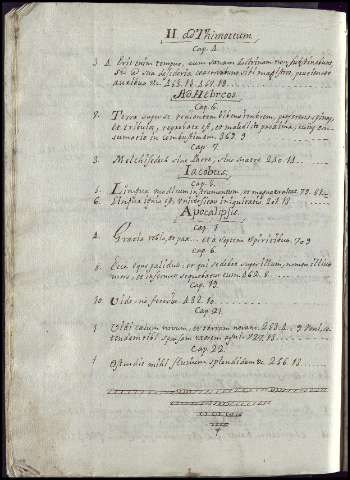 II. ad Thimoteum
Cap. 4
3. 4. Erit enim tempus, cum sanam doctrinam non sustinebunt
sed ad sua desideria coacervabunt sibi magistros, prurientes
auribus &c
Ad Hebreos
Cap. 6.
8. Terra super se venientem bibens imbrem, proferens spinas,
et tribulos, reprobata est, et maledicto proxima, cuius con-
sumatio in combustionem 369. 9
Cap. 7
3. Melchisedech sine Patre, sine matre 250. 18
Iacobus
Cap. 3.
5. Lingua modicum
6. Lingua ignis est, universitas iniquitatis 201. 18
Apocalipsis
Cap. 1
4. Gratia vobis, et pax et a septem spiritibus 709
Cap. 6.
8. Ecce equus pallidus, et qui sedebat super illum, nomen illi
mors, et infernus sequebatur eum 262. 8
Cap. 19
10. Vide ne feceris 432. 10
Cap. 21
1 Vidi caelum novum, et terram novam
Cap. 22
1 Ostendit mihi fluvium splendidum &c 256. 18